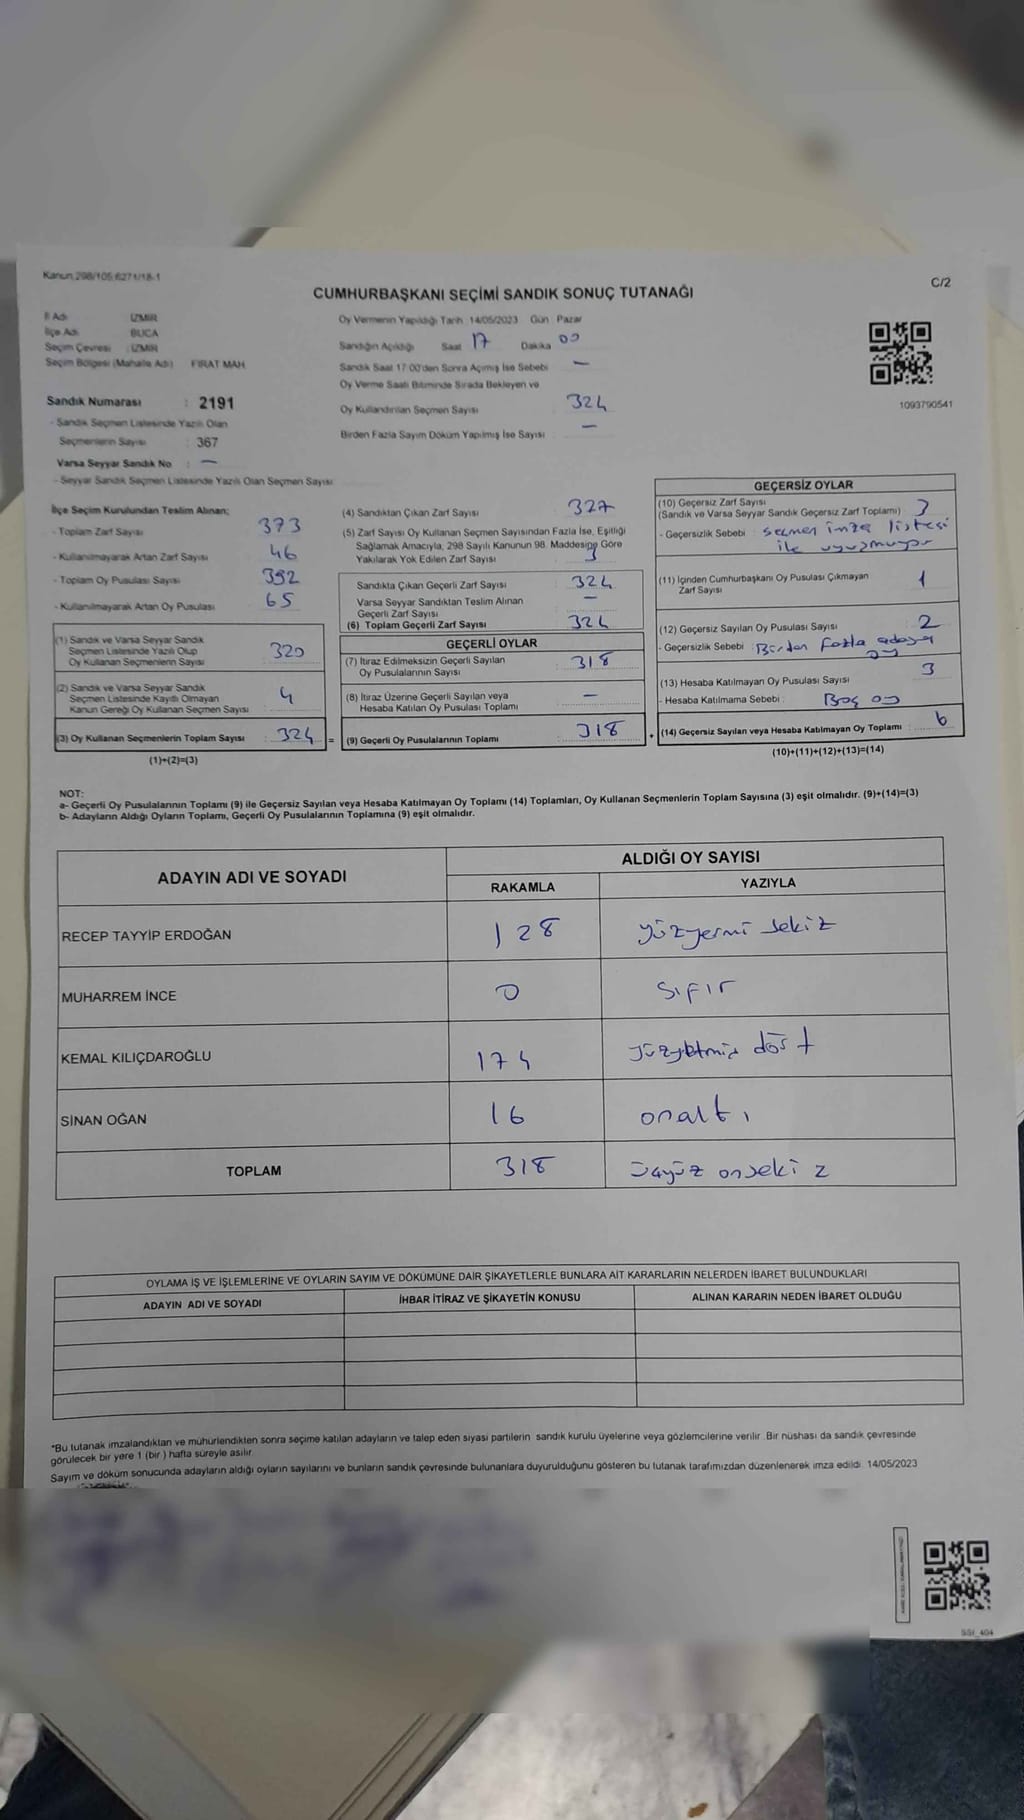 Kanun 298/105 6271/18-1
C/2
CUMHURBAŞKANI SEÇİMİ SANDIK SONUÇ TUTANAĞI
İl Adı : İZMİR
İlçe Adı : BUCA
Seçim Çevresi : İZMİR
Seçim Bölgesi (Mahalle Adı) FIRAT MAH
Sandık Numarası : 2191
- Sandık Seçmen Listesinde Yazılı Olan
Seçmenlerin Sayısı : 367
Varsa Seyyar Sandık No : —
- Seyyar Sandık Seçmen Listesinde Yazılı Olan Seçmen Sayısı
Oy Vermenin Yapıldığı Tarih :14/05/2023 Gün Pazar
Sandığın Açıldığı Saat 17 Dakika 00
Sandık Saat 17 00'den Sonra Açımış İse Sebebi —
Oy Verme Saati Bitiminde Sırada Bekleyen ve
Oy Kullandırılan Seçmen Sayısı 324
Birden Fazla Sayım Döküm Yapılmış İse Sayısı —
1093790541
İlçe Seçim Kurulundan Teslim Alınan;
- Toplam Zarf Sayısı : 373
- Kullanılmayarak Artan Zarf Sayısı : 46
- Toplam Oy Pusulası Sayısı : 392
- Kullanılmayarak Artan Oy Pusulası : 65
(1) Sandık ve Varsa Seyyar Sandık
Seçmen Listesinde Yazılı Olup
Oy Kullanan Seçmenlerin Sayısı : 320
(2) Sandık ve Varsa Seyyar Sandık
Seçmen Listesinde Kayıtlı Olmayan
Kanun Gereği Oy Kullanan Seçmen Sayısı : 4
(3) Oy Kullanan Seçmenlerin Toplam Sayısı : 324 =
(1)+(2)=(3)
(4) Sandıktan Çıkan Zarf Sayısı : 327
(5) Zarf Sayısı Oy Kullanan Seçmen Sayısından Fazla İse, Eşitliği
Sağlamak Amacıyla, 298 Sayılı Kanunun 98. Maddesine Göre
Yakılarak Yok Edilen Zarf Sayısı : 3
Sandıkta Çıkan Geçerli Zarf Sayısı : 324
Varsa Seyyar Sandıktan Teslim Alınan
Geçerli Zarf Sayısı : —
(6) Toplam Geçerli Zarf Sayısı : 324
GEÇERLİ OYLAR
(7) İtiraz Edilmeksizin Geçerli Sayılan
Oy Pusulalarının Sayısı : 318
(8) İtiraz Üzerine Geçerli Sayılan veya
Hesaba Katılan Oy Pusulası Toplamı : —
(9) Geçerli Oy Pusulalarının Toplamı : 318 +
GEÇERSİZ OYLAR
(10) Geçersiz Zarf Sayısı
(Sandık ve Varsa Seyyar Sandık Geçersiz Zarf Toplamı) : 3
- Geçersizlik Sebebi : seçmen imza listesi
ile uyuşmuyor
(11) İçinden Cumhurbaşkanı Oy Pusulası Çıkmayan
Zarf Sayısı : 1
(12) Geçersiz Sayılan Oy Pusulası Sayısı : 2
- Geçersizlik Sebebi : Birden fazla adaya
oy
(13) Hesaba Katılmayan Oy Pusulası Sayısı : 3
- Hesaba Katılmama Sebebi : Boş oy
(14) Geçersiz Sayılan veya Hesaba Katılmayan Oy Toplamı : 6
(10)+(11)+(12)+(13)=(14)
NOT:
a- Geçerli Oy Pusulalarının Toplamı (9) ile Geçersiz Sayılan veya Hesaba Katılmayan Oy Toplamı (14) Toplamları, Oy Kullanan Seçmenlerin Toplam Sayısına (3) eşit olmalıdır. (9)+(14)=(3)
b- Adayların Aldığı Oyların Toplamı, Geçerli Oy Pusulalarının Toplamına (9) eşit olmalıdır.
ADAYIN ADI VE SOYADI
ALDIĞI OY SAYISI
RAKAMLA YAZIYLA
RECEP TAYYİP ERDOĞAN 128 yüzyermi sekiz
MUHARREM İNCE 0 sıfır
KEMAL KILIÇDAROĞLU 174 yüzyetmiş dört
SİNAN OĞAN 16 onaltı
TOPLAM 318 üçyüz onsekiz
OYLAMA İŞ VE İŞLEMLERİNE VE OYLARIN SAYIM VE DÖKÜMÜNE DAİR ŞİKAYETLERLE BUNLARA AİT KARARLARIN NELERDEN İBARET BULUNDUKLARI
ADAYIN ADI VE SOYADI İHBAR İTİRAZ VE ŞİKAYETİN KONUSU ALINAN KARARIN NEDEN İBARET OLDUĞU
*Bu tutanak imzalandıktan ve mühürlendikten sonra seçime katılan adayların ve talep eden siyasi partilerin sandık kurulu üyelerine veya gözlemcilerine verilir. Bir nüshası da sandık çevresinde
görülecek bir yere 1 (bir ) hafta süreyle asılır.
Sayım ve döküm sonucunda adayların aldığı oyların sayılarını ve bunların sandık çevresinde bulunanlara duyurulduğunu gösteren bu tutanak tarafımızdan düzenlenerek imza edildi. 14/05/2023
SSİ_404